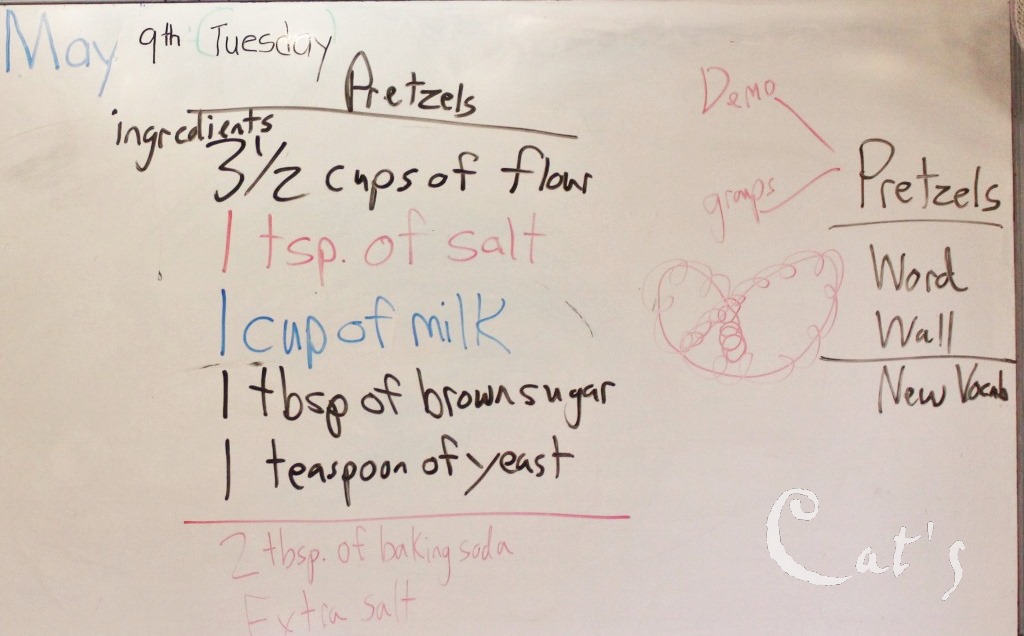 May 9th Tuesday
Pretzels
ingredients
3 1/2 cups of flour
1 tsp. of salt
1 cup of milk
1 tbsp of brown sugar
1 teaspoon of yeast
2 tbsp. of baking soda
Extra salt
Demo
groups
Pretzels
Word
Wall
New Vocab
Cat's